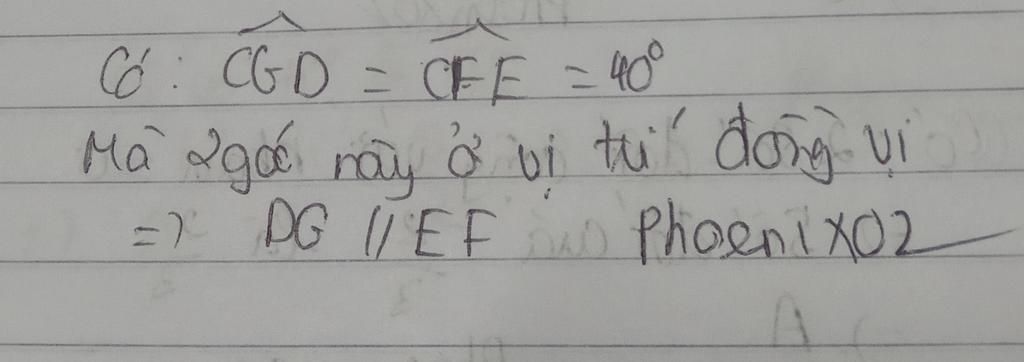 Có : CGD = CFE = 40°
Mà 2 góc này ở vị trí đồng vị
=> DG // EF PhoeniX02